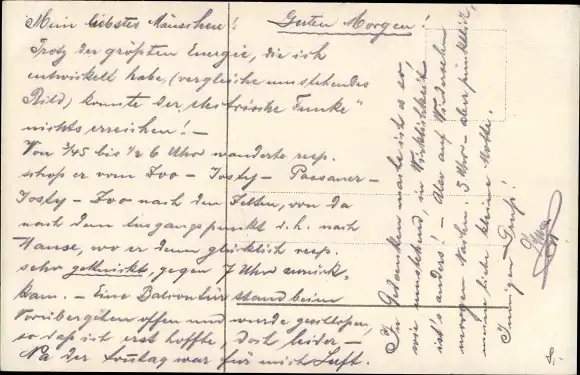 Mein liebstes Mäuschen! Guten Morgen!
Trotz der größten Energie, die sich
entwickelt habe, (vergleiche umstehendes
Bild), konnte der „elektrische Funke"
nichts erreichen! —
Von 3/45 bis 1/2 6 Uhr wanderte resp.
schob er vom Zoo – Josty – Passauer –
Josty – Zoo nach den Zelten, von da
nach dem Eingangspunkt d. h. nach
Hause, wo er denn glücklich resp.
sehr geknickt, gegen 7 Uhr zurück-
kam. – Eine Balkontür stand beim
Vorübergehen offen und wurde geschlossen,
so daß ich erst hoffte, doch leider –
Na der Sonntag war für mich Luft.
In Gedanken mache ich's so,
wie umstehend, in Wirklichkeit
ist's anders! – Also auf Wiedersehen
morgen Nachm. 5 Uhr – aber pünktlich,
meine liebe kleine Motte.
Innigen Gruß!